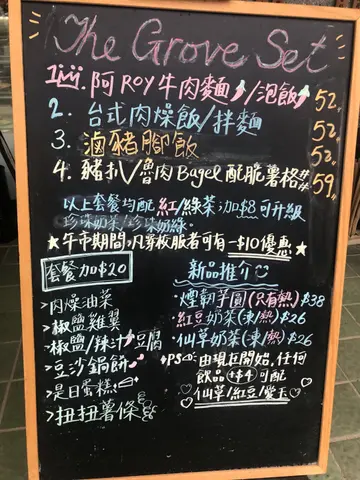 The Grove Set
1. 阿ROY牛肉麵/泡飯 52.
2. 台式肉燥飯/拌麵 52.
3. 滷豬腳飯 52.
4. 豬扒/魯肉Bagel配脆薯格 59.
以上套餐均配紅/綠茶;加$8可升級
珍珠奶茶/珍珠奶綠。
★午市期間,凡穿校服者可有-$10優惠★
套餐加$20
>肉燥油菜
>椒鹽雞翼
>椒鹽/辣汁豆腐
>豆沙鍋餅
>是日蛋糕
>扭扭薯條
新品推介
·煙韌芋圓(只有熱) $38
·紅豆奶茶(凍/熱) $26
·仙草奶茶(凍/熱) $26
*PS: 由現在開始,任何
飲品+$4可配
仙草/紅豆/愛玉